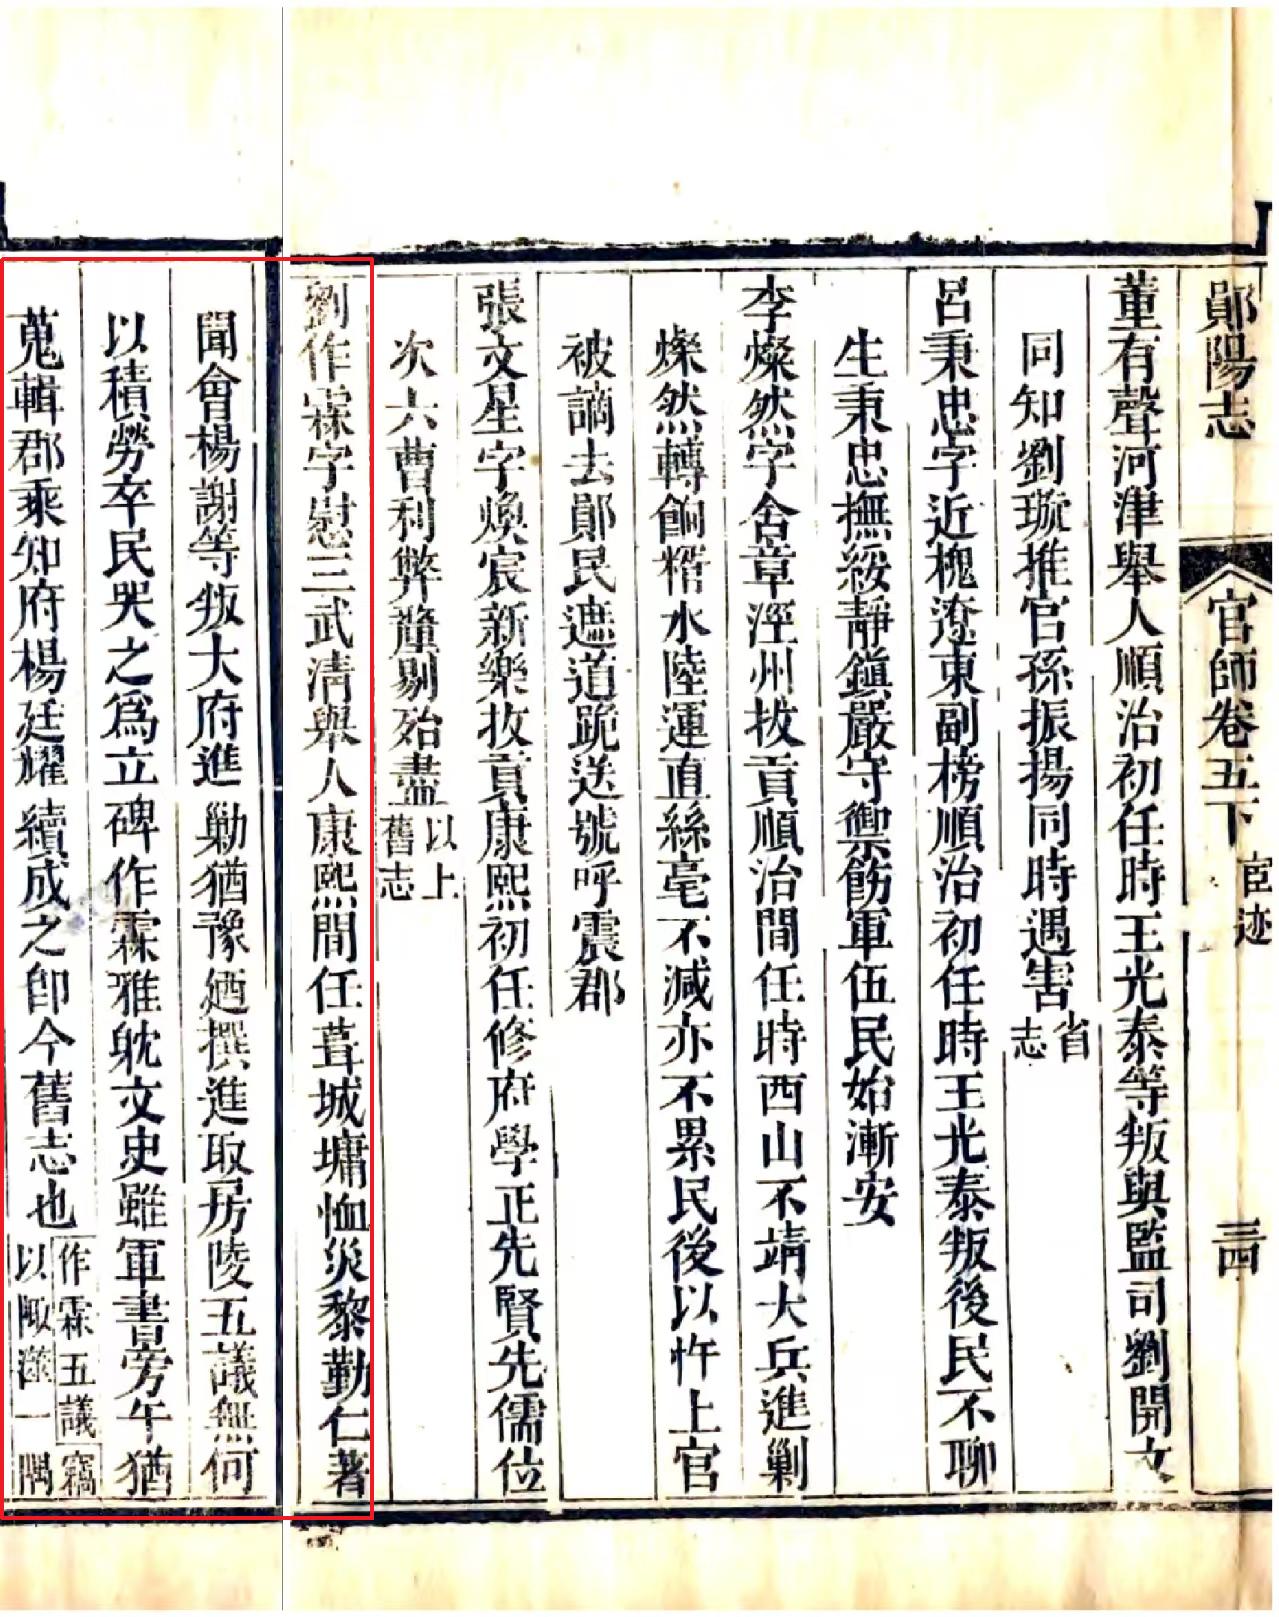 鄖陽志
官師卷五下
宦迹
三四
董有聲河津舉人順治初任時王光泰等叛與監司劉開文
同知劉璇推官孫振揚同時遇害省志
呂秉忠字近槐遼東副榜順治初任時王光泰叛後民不聊
生秉忠撫綏靜鎮嚴守禦飭軍伍民始漸安
李燦然字含章涇州拔貢順治間任時西山不靖大兵進剿
燦然轉餉糈水陸運直絲毫不減亦不累民後以忤上官
被謫去鄖民遮道跪送號呼震郡
張文星字煥宸新樂拔貢康熙初任修府學正先賢先儒位
次六曹利弊釐剔殆盡以上舊志
劉作霖字慰三武清舉人康熙間任葺城墉恤災黎勤仁著
聞會楊謝等叛大府進勦猶豫廼撰進取房陵五議無何
以積勞卒民哭之爲立碑作霖雅躭文史雖軍書旁午猶
蒐輯郡乘知府楊廷耀續成之卽今舊志也作霖五議窩以陬澨一隅